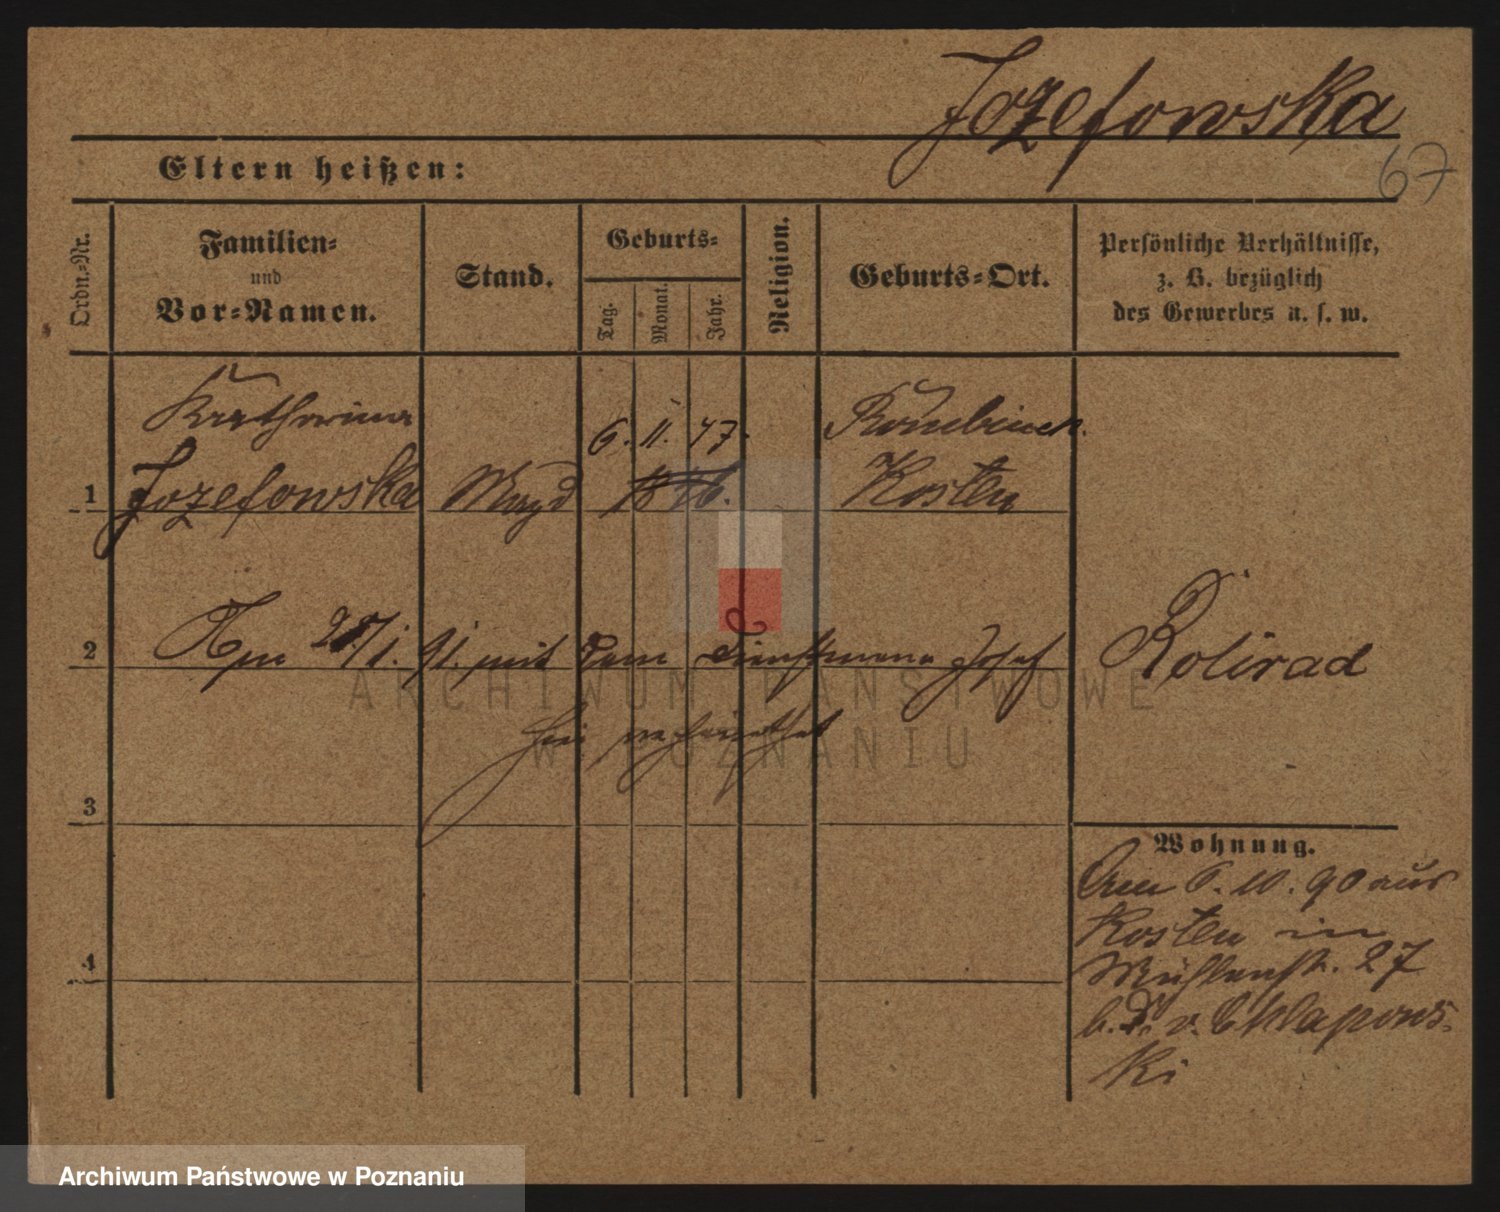 Jozefowska
67
Eltern heißen:
Ordn.-Nr.
Familien-
und
Vor-Namen.
Stand.
Geburts-
Tag.
Monat.
Jahr.
Religion.
Geburts-Ort.
Persönliche Verhältnisse,
z. B. bezüglich
des Gewerbes u. s. w.
Katharina
6. 11. 47.
1 Jozefowska Magd 1846. Kosten
2 Am 28/1. 91. mit dem Dienstmann Josef Rolirad
hier verheirathet
3
Wohnung.
Am 6. 10. 90 aus
Kosten in
Mühlenstr. 27
b. D. v. Chlapows-
ki
4
ARCHIWUM PAŃSTWOWE
W POZNANIU
Archiwum Państwowe w Poznaniu